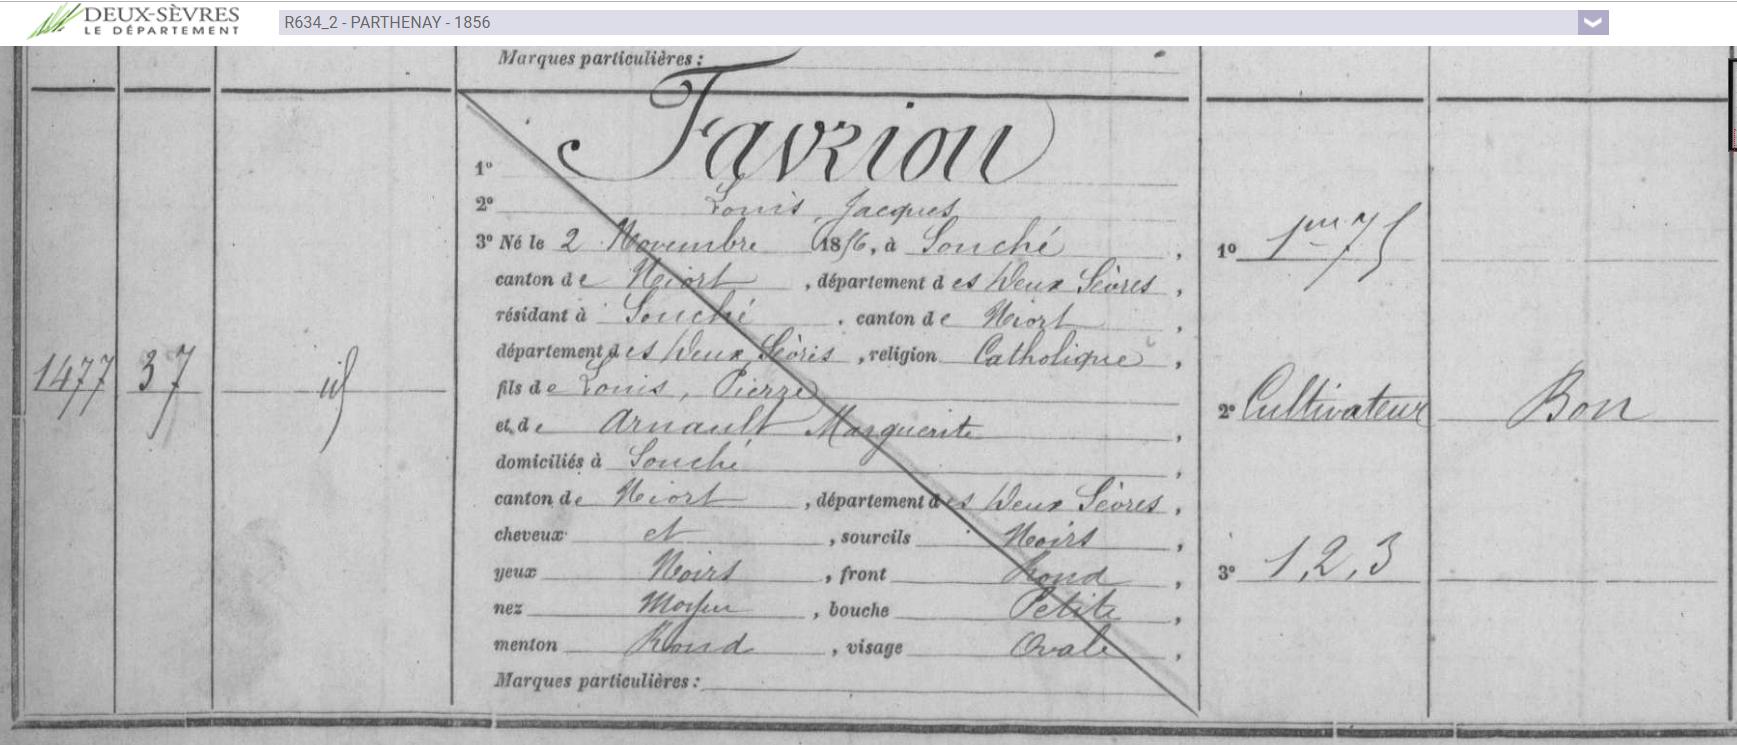 DEUX-SÈVRES
LE DÉPARTEMENT
R634_2 - PARTHENAY - 1856
Marques particulières :
1º Favriou
2º Louis Jacques
3º Né le 2 Novembre 1856, à Souché,
canton de Niort, département des Deux Sèvres,
résidant à Souché, canton de Niort,
département des Deux Sèvres, religion Catholique,
fils de Louis, Pierre
et de Arnault Marguerite,
domiciliés à Souché,
canton de Niort, département des Deux Sèvres,
cheveux et, sourcils Noirs,
yeux Noirs, front Rond,
nez Moyen, bouche Petite,
menton Rond, visage Ovale,
Marques particulières :
1477 37
1º 1m75
2º Cultivateur Bon
3º 1, 2, 3